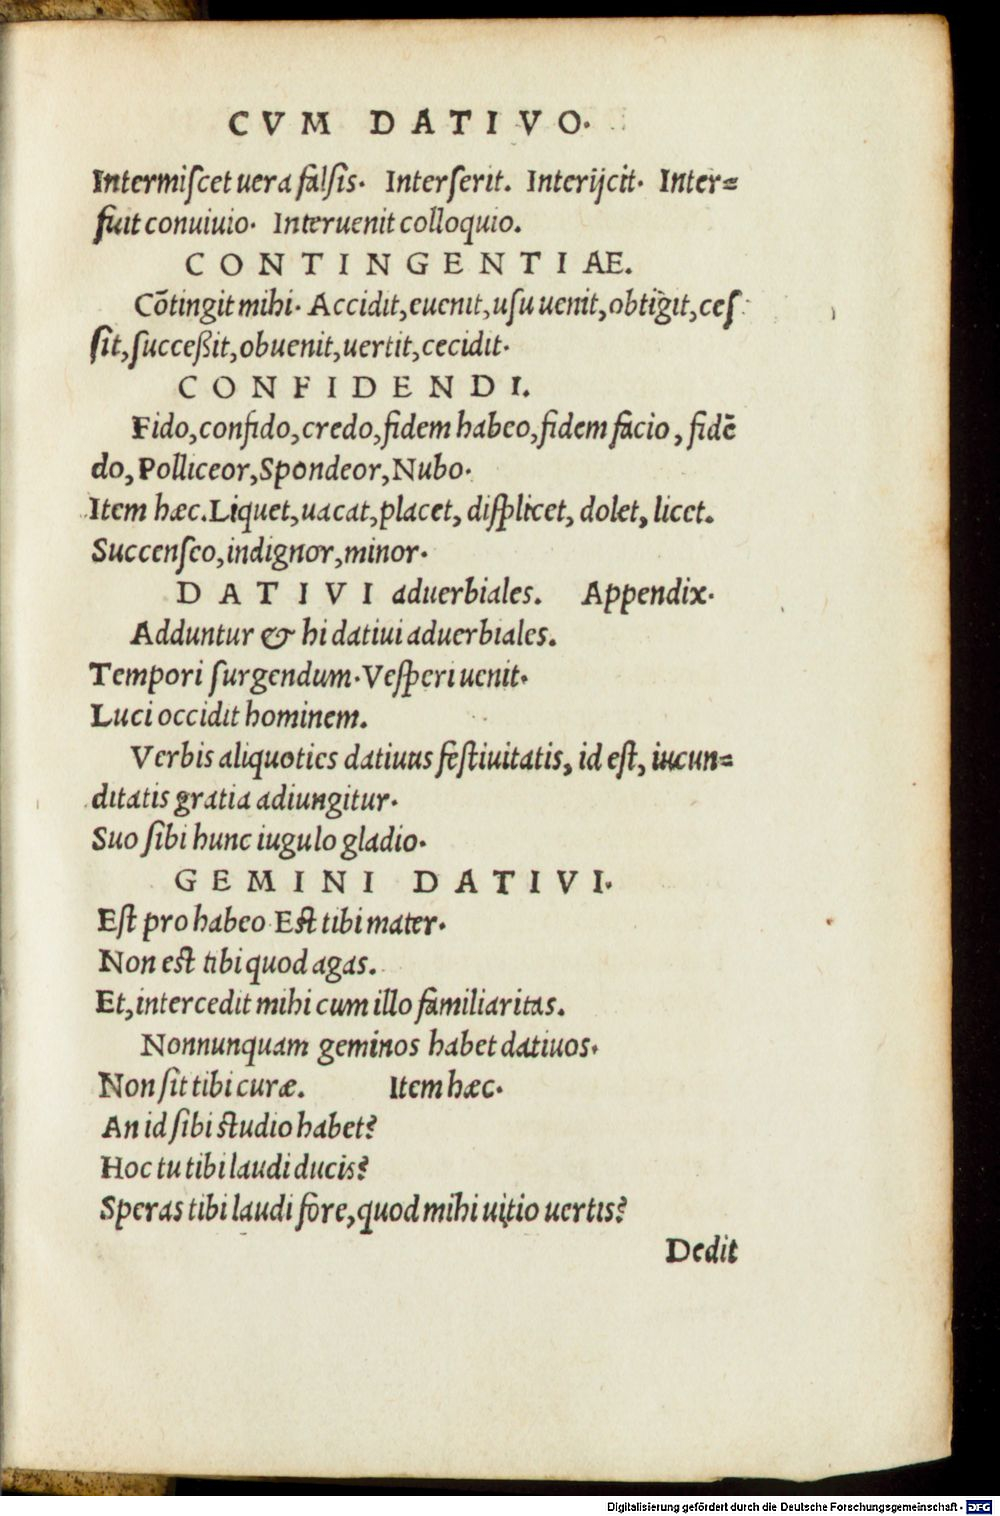 CVM DATIVO.
Intermiſcet uera falſis. Interſerit. Interijcit. Inter=
fuit conuiuio. Interuenit colloquio.
CONTINGENTIAE.
Cōtingit mihi. Accidit, euenit, uſu uenit, obtigit, ceſ
ſit, succeßit, obuenit, uertit, cecidit.
CONFIDENDI.
Fido, confido, credo, fidem habeo, fidem facio, fidē
do, Polliceor, Spondeor, Nubo.
Item hæc. Liquet, uacat, placet, diſplicet, dolet, licet.
Succenſeo, indignor, minor.
DATIVI aduerbiales. Appendix.
Adduntur & hi datiui aduerbiales.
Tempori ſurgendum. Veſperi uenit.
Luci occidit hominem.
Verbis aliquoties datiuus feſtiuitatis, id eſt, iucun=
ditatis gratia adiungitur.
Suo ſibi hunc iugulo gladio.
GEMINI DATIVI.
Eſt pro habeo Eſt tibi mater.
Non eſt tibi quod agas.
Et, intercedit mihi cum illo familiaritas.
Nonnunquam geminos habet datiuos.
Non ſit tibi curæ. Item hæc.
An id ſibi ſtudio habet?
Hoc tu tibi laudi ducis?
Speras tibi laudi fore, quod mihi uitio uertis?
Dedit
Digitalisierung gefördert durch die Deutsche Forschungsgemeinschaft - DFG